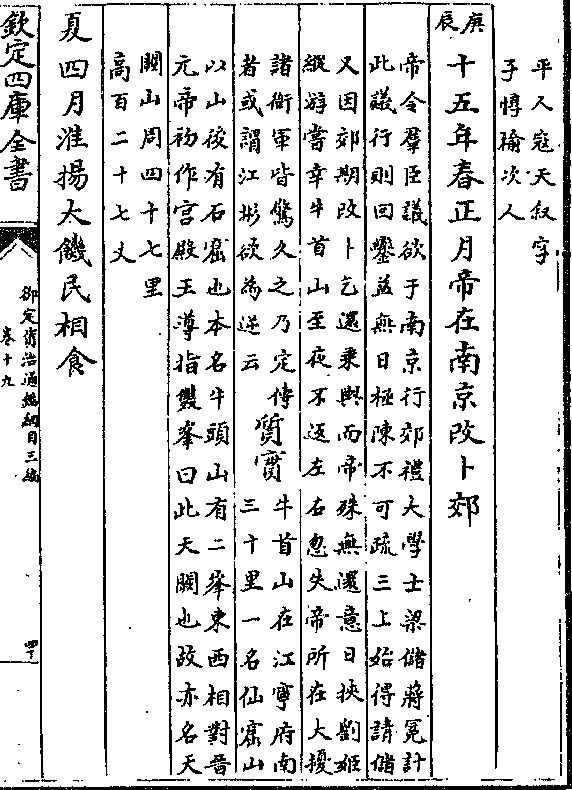 平人冦天叙字
子惇榆次人
庚辰
十五年春正月帝在南京改卜郊
帝令羣臣議欲于南京行郊禮大學士梁儲蔣冕計
此議行則回鑾益無日極陳不可疏三上始得請儲
又因郊期改卜乞還乘輿而帝殊無還意日挾劉姬
縱游嘗幸牛首山至夜不返左右忽失帝所在大擾
諸衛軍皆驚久之乃定傳
者或謂江彬欲為逆云
質實
牛首山在江寧府南
三十里一名仙窟山
以山後有石窟也本名牛頭山有二峯東西相對晉
元帝初作宫殿王導指雙峯曰此天闕也故亦名天
闕山周四十七里
高百二十七丈
夏四月淮揚大饑民相食
欽定四庫全書
御定資治通鑑綱目三編
卷十九